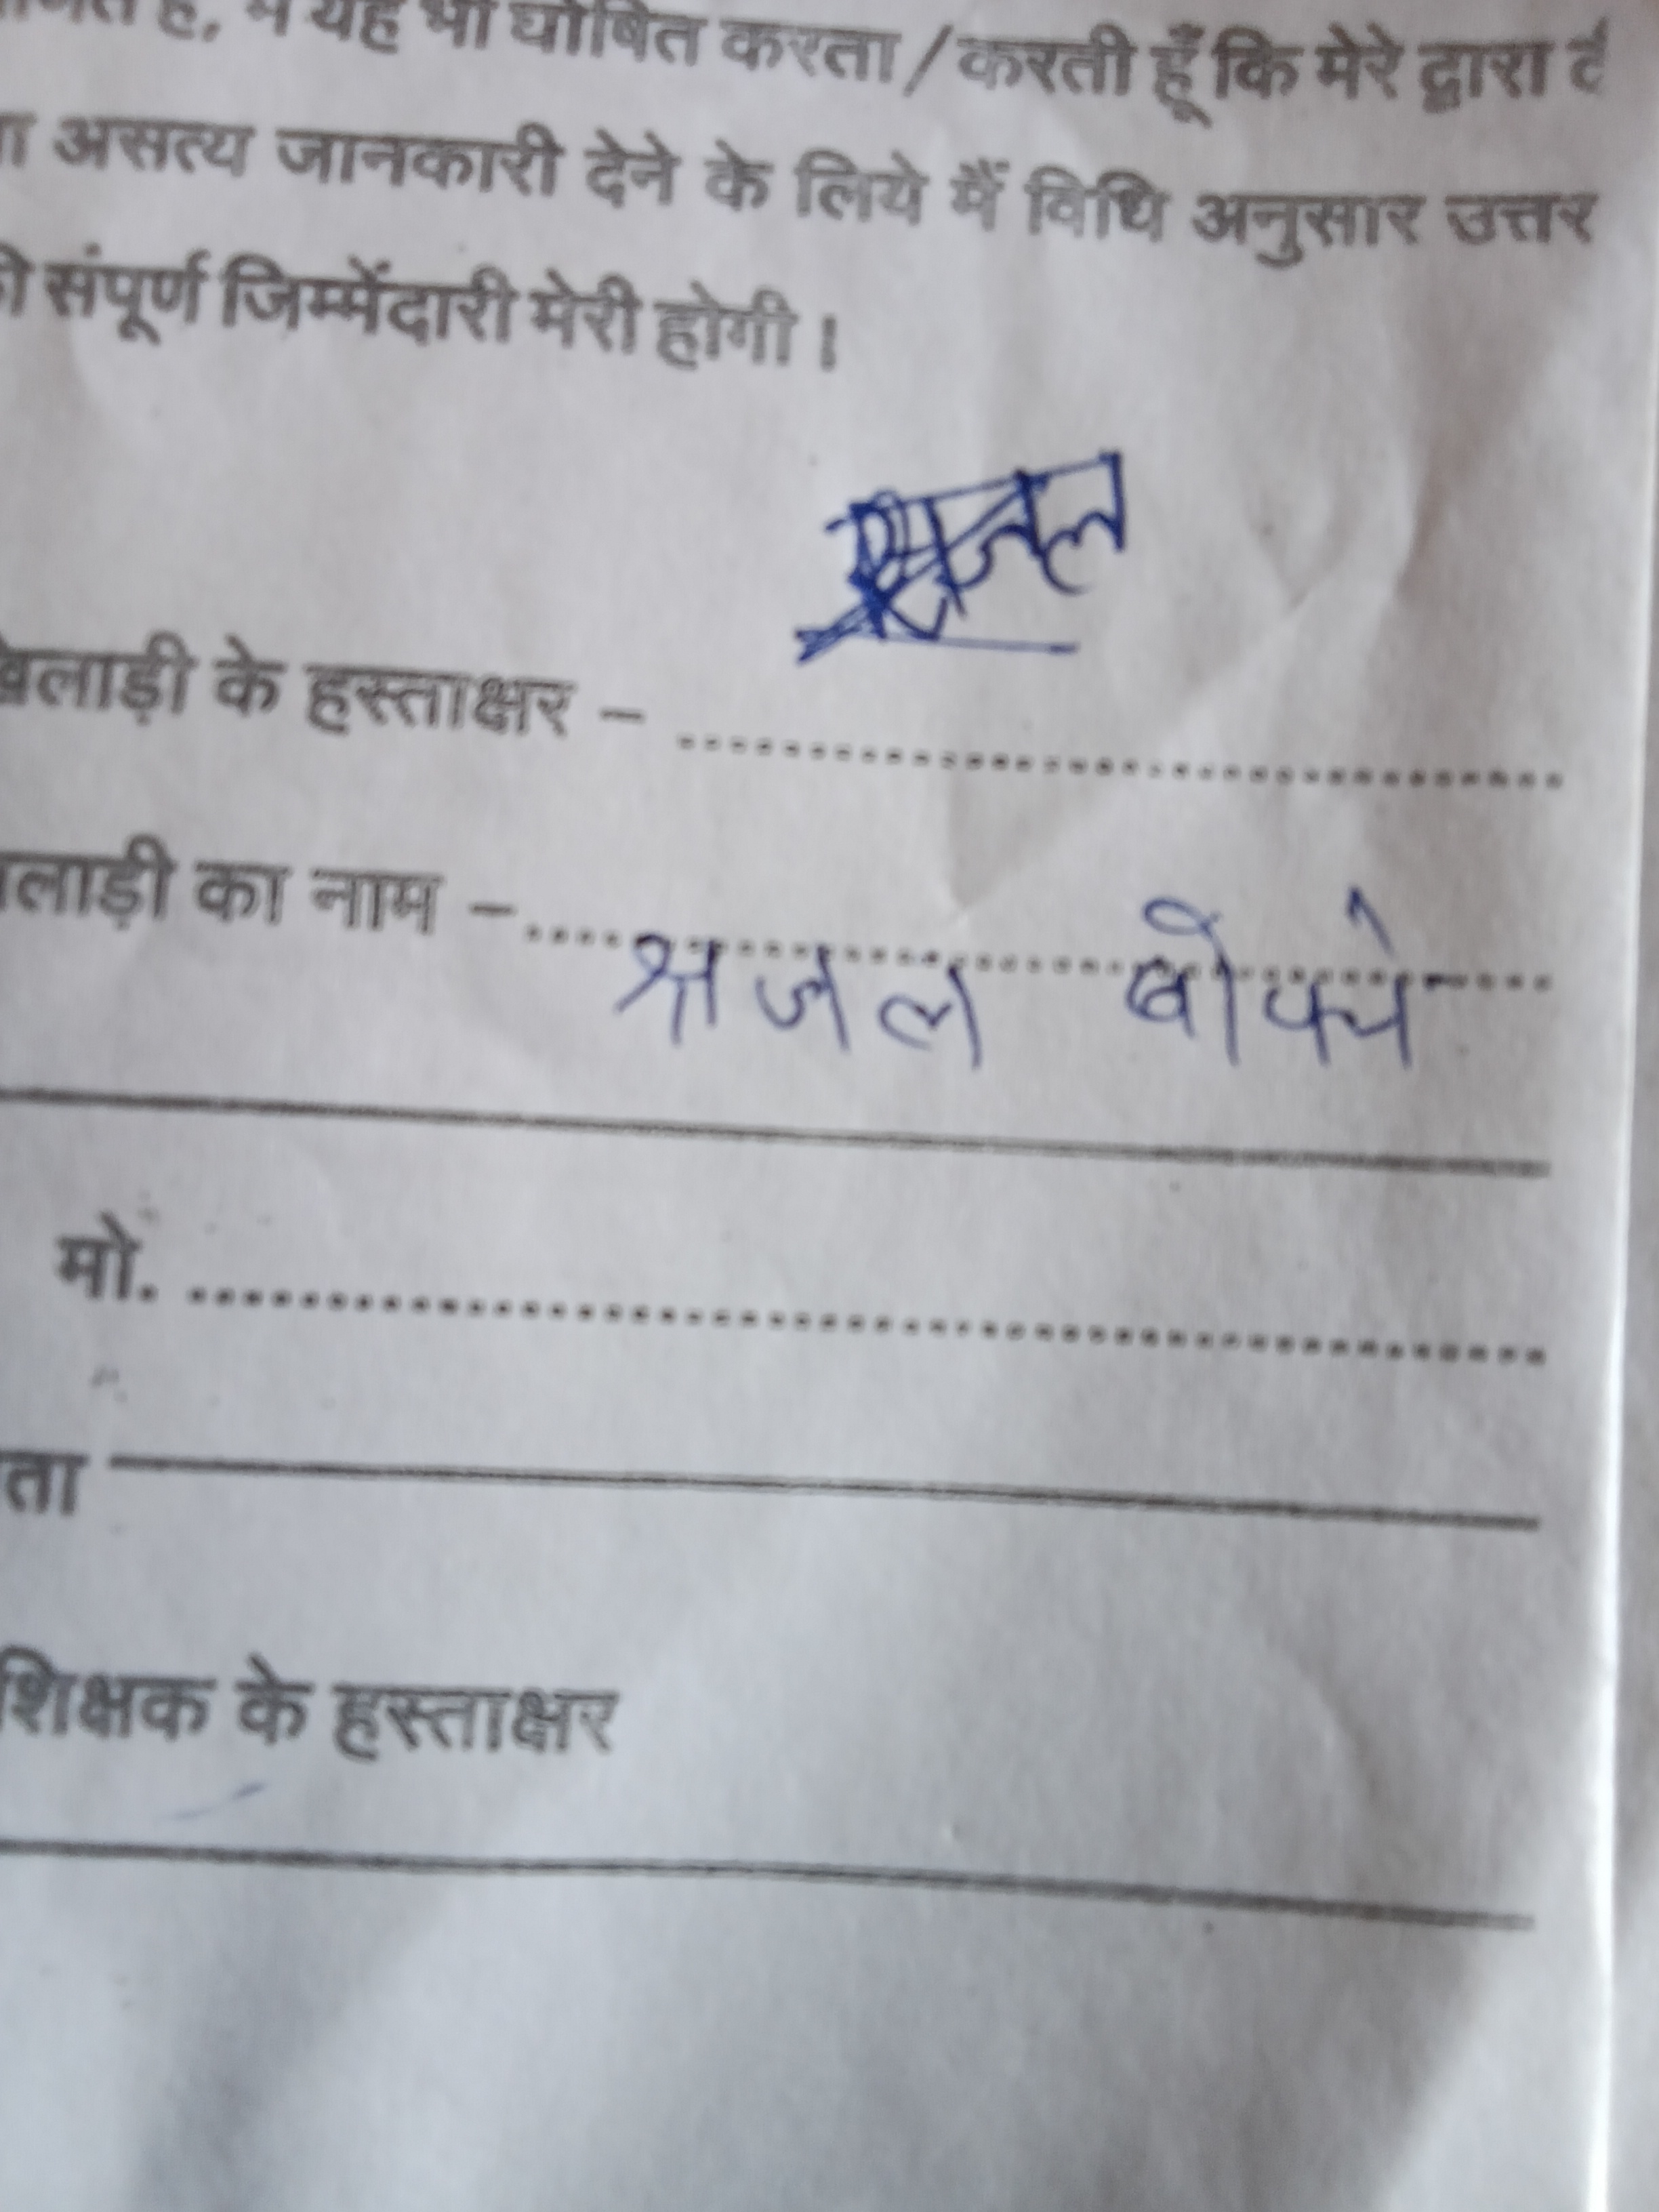 है, मैं यह भी घोषित करता/करती हूँ कि मेरे द्वारा
असत्य जानकारी देने के लिये मैं विधि अनुसार उत्तर
संपूर्ण जिम्मेंदारी मेरी होगी।
खिलाड़ी के हस्ताक्षर –
लाड़ी का नाम – श्रजल
मो.
ता
शिक्षक के हस्ताक्षर